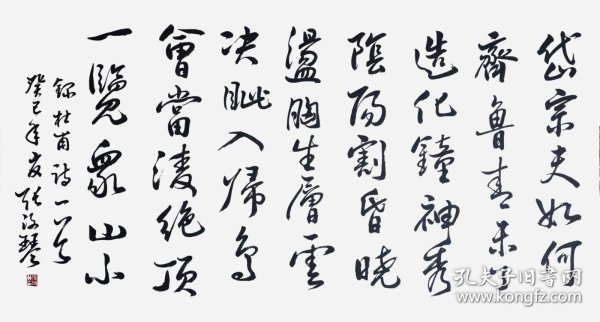 岱宗夫如何
齊魯青未了
造化鐘神秀
陰陽割昏曉
盪胸生層雲
決眦入歸鳥
會當凌絕頂
一覽衆山小
錄杜甫詩一首
癸巳年
孔夫子旧书网
www.kongfz.com